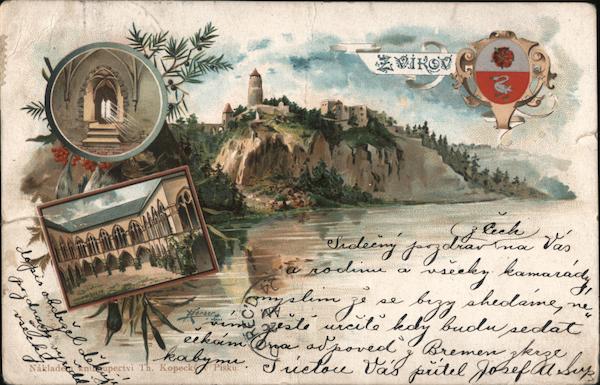 Zvíkov
z Čech
Srdečný pozdrav na Vás
a rodinu a všecky kamarády,
myslím že se brzy shledáme, ne-
vím ještě určitě kdy budu
čekám na odpověď z Bremen skrze
S úctou Váš přítel Josef
pozdravuj
všecky
Nákladem knihkupectví Th. Kopecký v Písku.